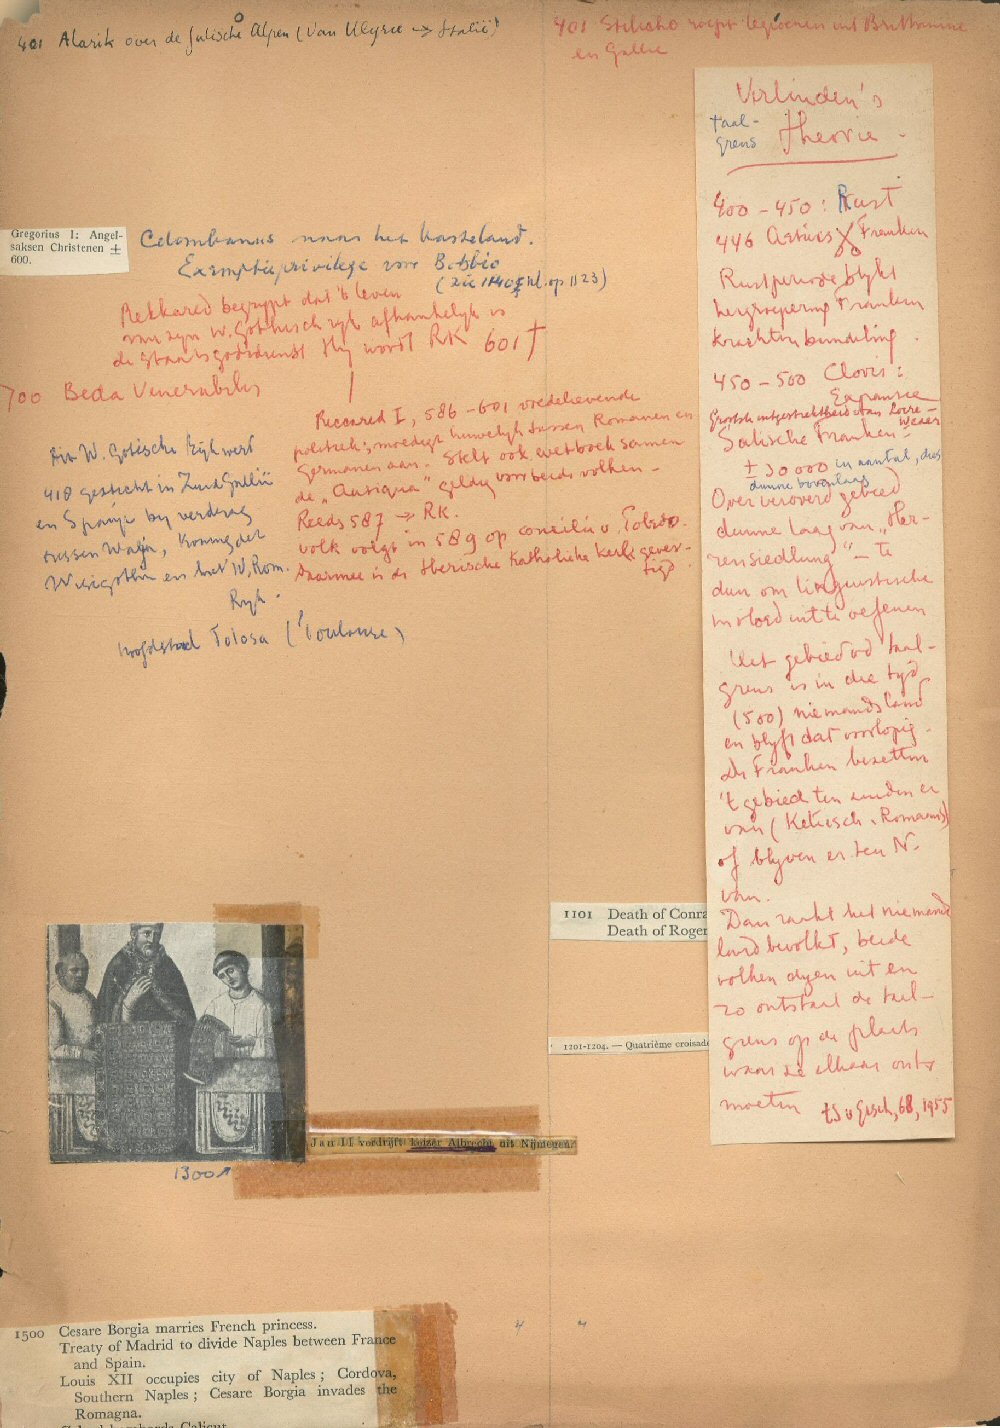 401 Alarik over de Julische Alpen (van Illyrië → Italië)
401 Stilicho roept legioenen uit Brittannië
en Gallië
Verlinden's
taal-
grens theorie.
400 – 450: Rust
446 Aetius X Franken
Rustperiode blijkt
hergroepering Franken
krachtenbundeling.
450 – 500 Clovis:
Expansie
Grootste uitgestrektheid van Loire – Weser
Salische Franken –
± 30 000 in aantal, dus
dunne bovenlaag
Over veroverd gebied
dunne laag van „Her-
rensiedlung" – te
dun om linguistische
invloed uit te oefenen
Het gebied v/d taal-
grens is in die tijd
(500) niemandsland
en blijft dat voorlopig.
De Franken bezetten
't gebied ten zuiden er
van (Keltisch, Romaans)
of blijven er ten N.
van.
Dan raakt het niemands
land bevolkt, beide
volken dijen uit en
zo ontstaat de taal-
grens op de plaats
waar ze elkaar ont-
moeten ts v Gesch, 68, 1955
Gregorius I: Angel-
saksen Christenen ±
600.
Colombanus naar het vasteland.
Exemptieprivilege voor Bobbio
(zie 1140 hl. op 1123)
Rekkared begrypt dat 't leven
van zijn W. Gothisch ryk afhankelijk is
de staatsgodsdienst Hij wordt RK 601 †
700 Beda Venerabilis
Reccared I, 586 – 601 vredelievende
politiek; moedigt huwelijk tussen Romanen en
Germanen aan. Stelt ook wetboek samen
de „Antiqua" geldig voor beide volken –
Reeds 587 → RK.
volk volgt in 589 op concilie v. Toledo.
Daarmee is de Iberische Katholieke kerk geves-
tigd.
Dit W. Gotische Rijk werd
418 gesticht in Zuid Gallië
en Spanje bij verdrag
tussen Walja, Koning der
Wisigothen en het W. Rom.
Ryk.
hoofdstad Tolosa (Toulouse)
1101 Death of Conra
Death of Roger
1201-1204. — Quatrième croisade
Jan II verdrijft keizer Albrecht uit Nijmegen.
1300
1500 Cesare Borgia marries French princess.
Treaty of Madrid to divide Naples between France
and Spain.
Louis XII occupies city of Naples; Cordova,
Southern Naples; Cesare Borgia invades the
Romagna.
bombards Calicut